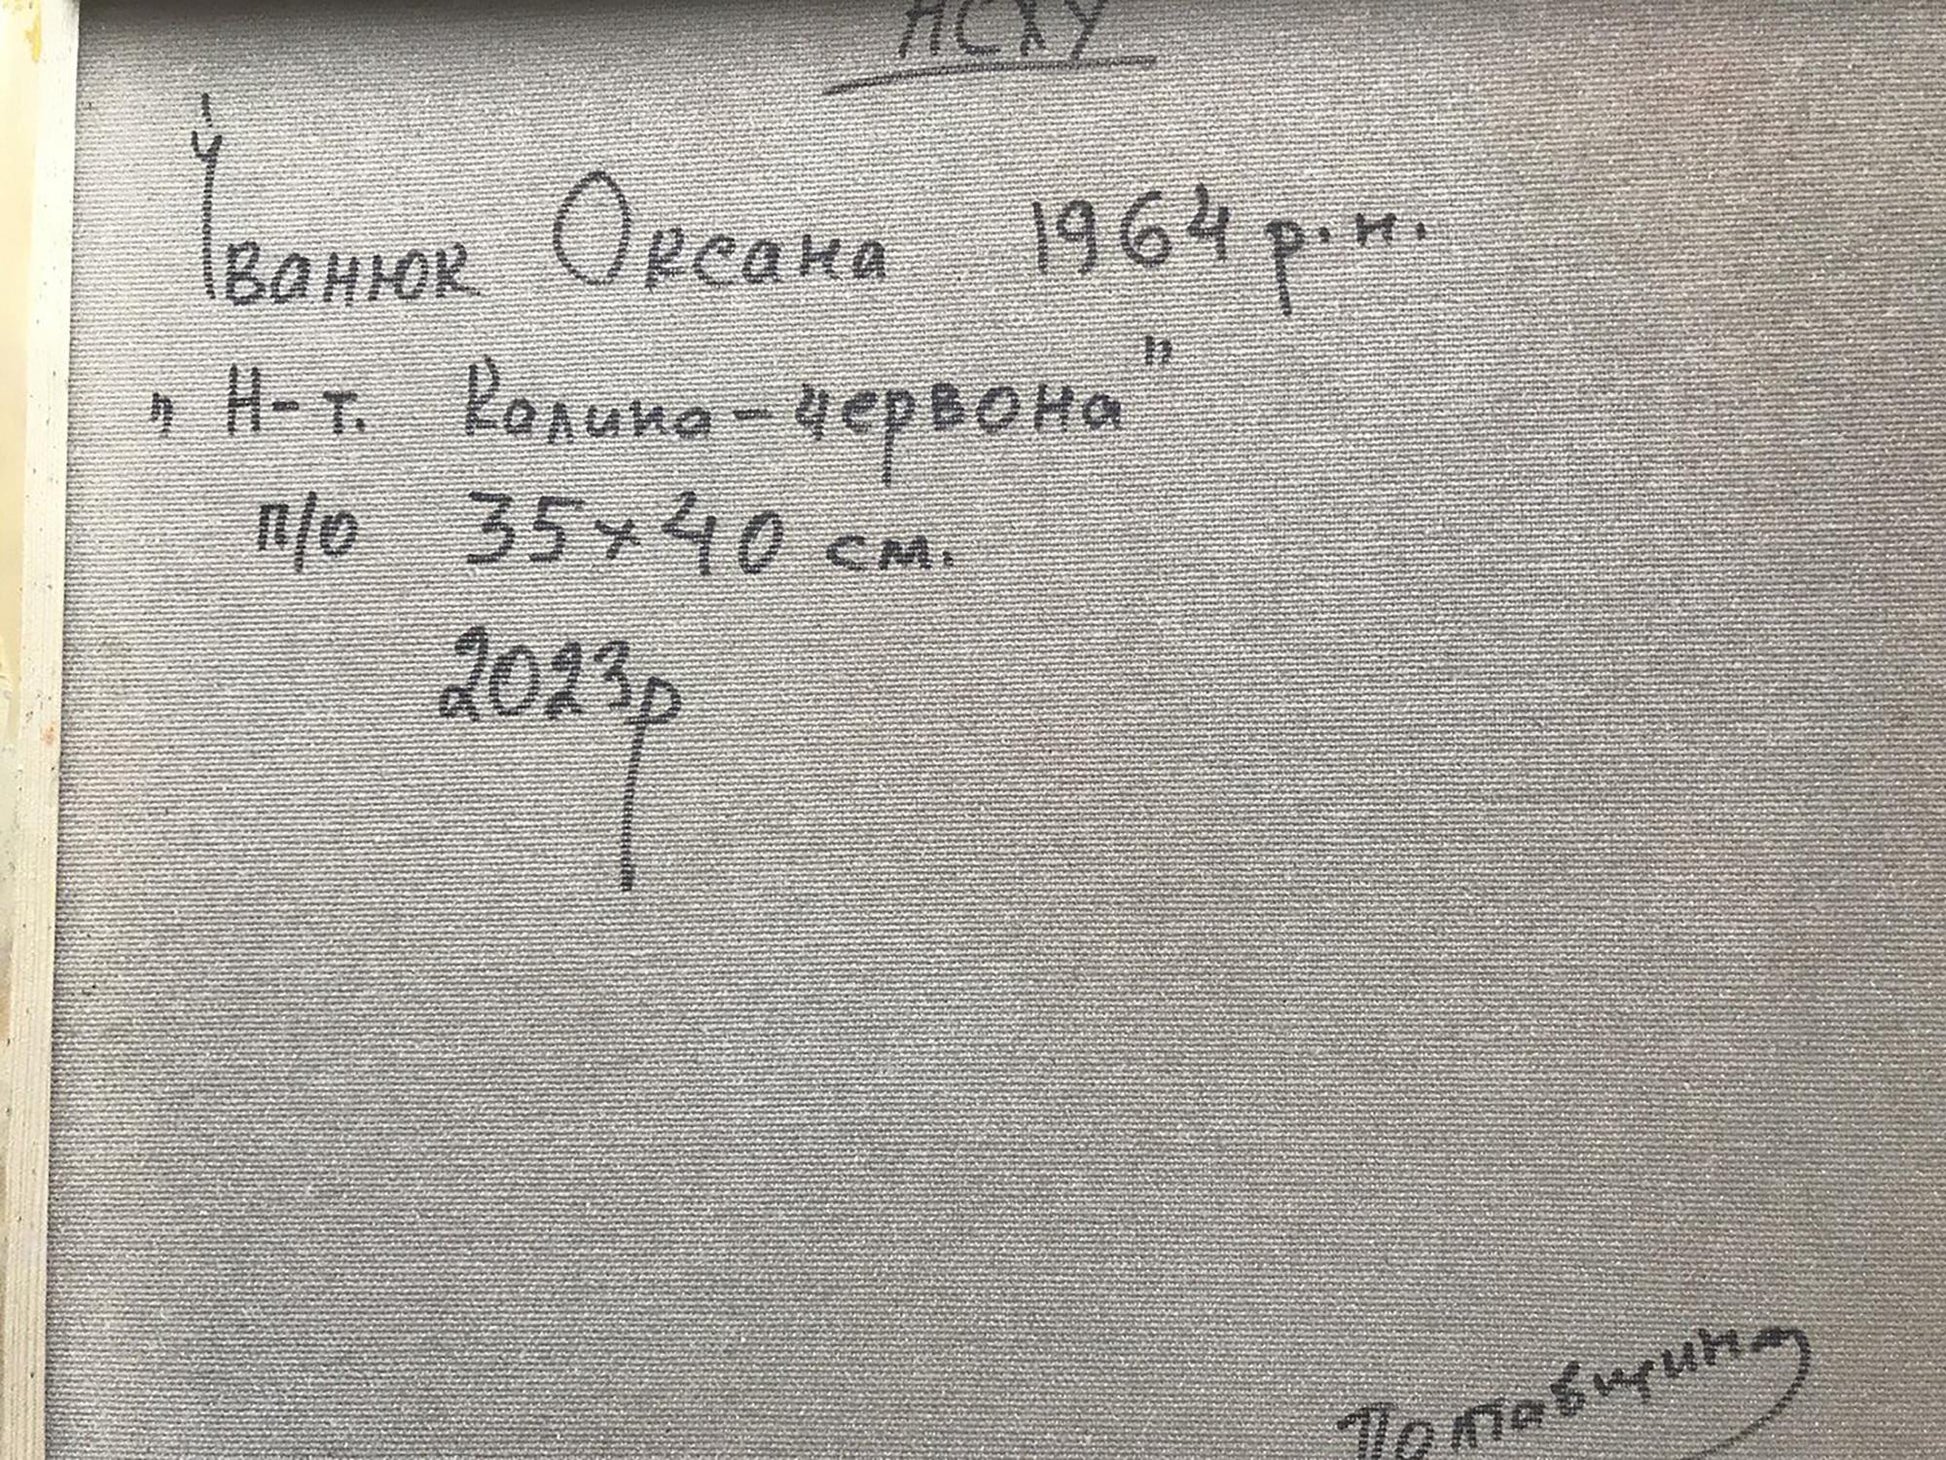 НСХУ
Іванюк Оксана 1964 р.н.
„Н-т. Калина-червона"
п/о 35х40 см.
2023р
Полтавщина